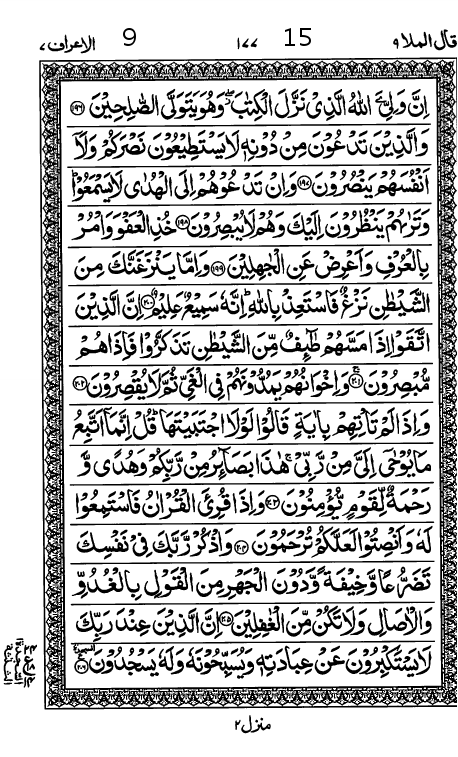 قال الملا ٩ 15 ١٧٧ 9 الاعراف ٧
اِنَّ وَلِيِّ َۧ اللّٰهُ الَّذِىْ نَزَّلَ الْكِتٰبَ ۖ وَهُوَ يَتَوَلَّى الصّٰلِحِيْنَ ﴿۱۹۶﴾
وَالَّذِيْنَ تَدْعُوْنَ مِنْ دُوْنِهٖ لَا يَسْتَطِيْعُوْنَ نَصْرَكُمْ وَلَاۤ
اَنْفُسَهُمْ يَنْصُرُوْنَ ﴿۱۹۷﴾ وَاِنْ تَدْعُوْهُمْ اِلَى الْهُدٰى لَا يَسْمَعُوْا ؕ
وَتَرٰٮهُمْ يَنْظُرُوْنَ اِلَيْكَ وَهُمْ لَا يُبْصِرُوْنَ ﴿۱۹۸﴾ خُذِ الْعَفْوَ وَاْمُرْ
بِالْعُرْفِ وَاَعْرِضْ عَنِ الْجٰهِلِيْنَ ﴿۱۹۹﴾ وَاِمَّا يَنْزَغَنَّكَ مِنَ
الشَّيْطٰنِ نَزْغٌ فَاسْتَعِذْ بِاللّٰهِ ؕ اِنَّهٗ سَمِيْعٌ عَلِيْمٌ ﴿۲۰۰﴾ اِنَّ الَّذِيْنَ
اتَّقَوْا اِذَا مَسَّهُمْ طٰۤئِفٌ مِّنَ الشَّيْطٰنِ تَذَكَّرُوْا فَاِذَا هُمْ
مُّبْصِرُوْنَ ﴿۲۰۱﴾ وَاِخْوَانُهُمْ يَمُدُّوْنَهُمْ فِى الْغَىِّ ثُمَّ لَا يُقْصِرُوْنَ ﴿۲۰۲﴾
وَاِذَا لَمْ تَاْتِهِمْ بِاٰيَةٍ قَالُوْا لَوْلَا اجْتَبَيْتَهَا ؕ قُلْ اِنَّمَاۤ اَتَّبِعُ
مَا يُوْحٰٓى اِلَىَّ مِنْ رَّبِّىْ ۚ هٰذَا بَصَآئِرُ مِنْ رَّبِّكُمْ وَهُدًى وَّ
رَحْمَةٌ لِّقَوْمٍ يُّؤْمِنُوْنَ ﴿۲۰۳﴾ وَاِذَا قُرِئَ الْقُرْاٰنُ فَاسْتَمِعُوْا
لَهٗ وَاَنْصِتُوْا لَعَلَّكُمْ تُرْحَمُوْنَ ﴿۲۰۴﴾ وَاذْكُرْ رَّبَّكَ فِىْ نَفْسِكَ
تَضَرُّعًا وَّخِيْفَةً وَّدُوْنَ الْجَهْرِ مِنَ الْقَوْلِ بِالْغُدُوِّ
وَالْاٰصَالِ وَلَا تَكُنْ مِّنَ الْغٰفِلِيْنَ ﴿۲۰۵﴾ اِنَّ الَّذِيْنَ عِنْدَ رَبِّكَ
لَا يَسْتَكْبِرُوْنَ عَنْ عِبَادَتِهٖ وَيُسَبِّحُوْنَهٗ وَلَهٗ يَسْجُدُوْنَ ﴿۲۰۶﴾
منزل ٢